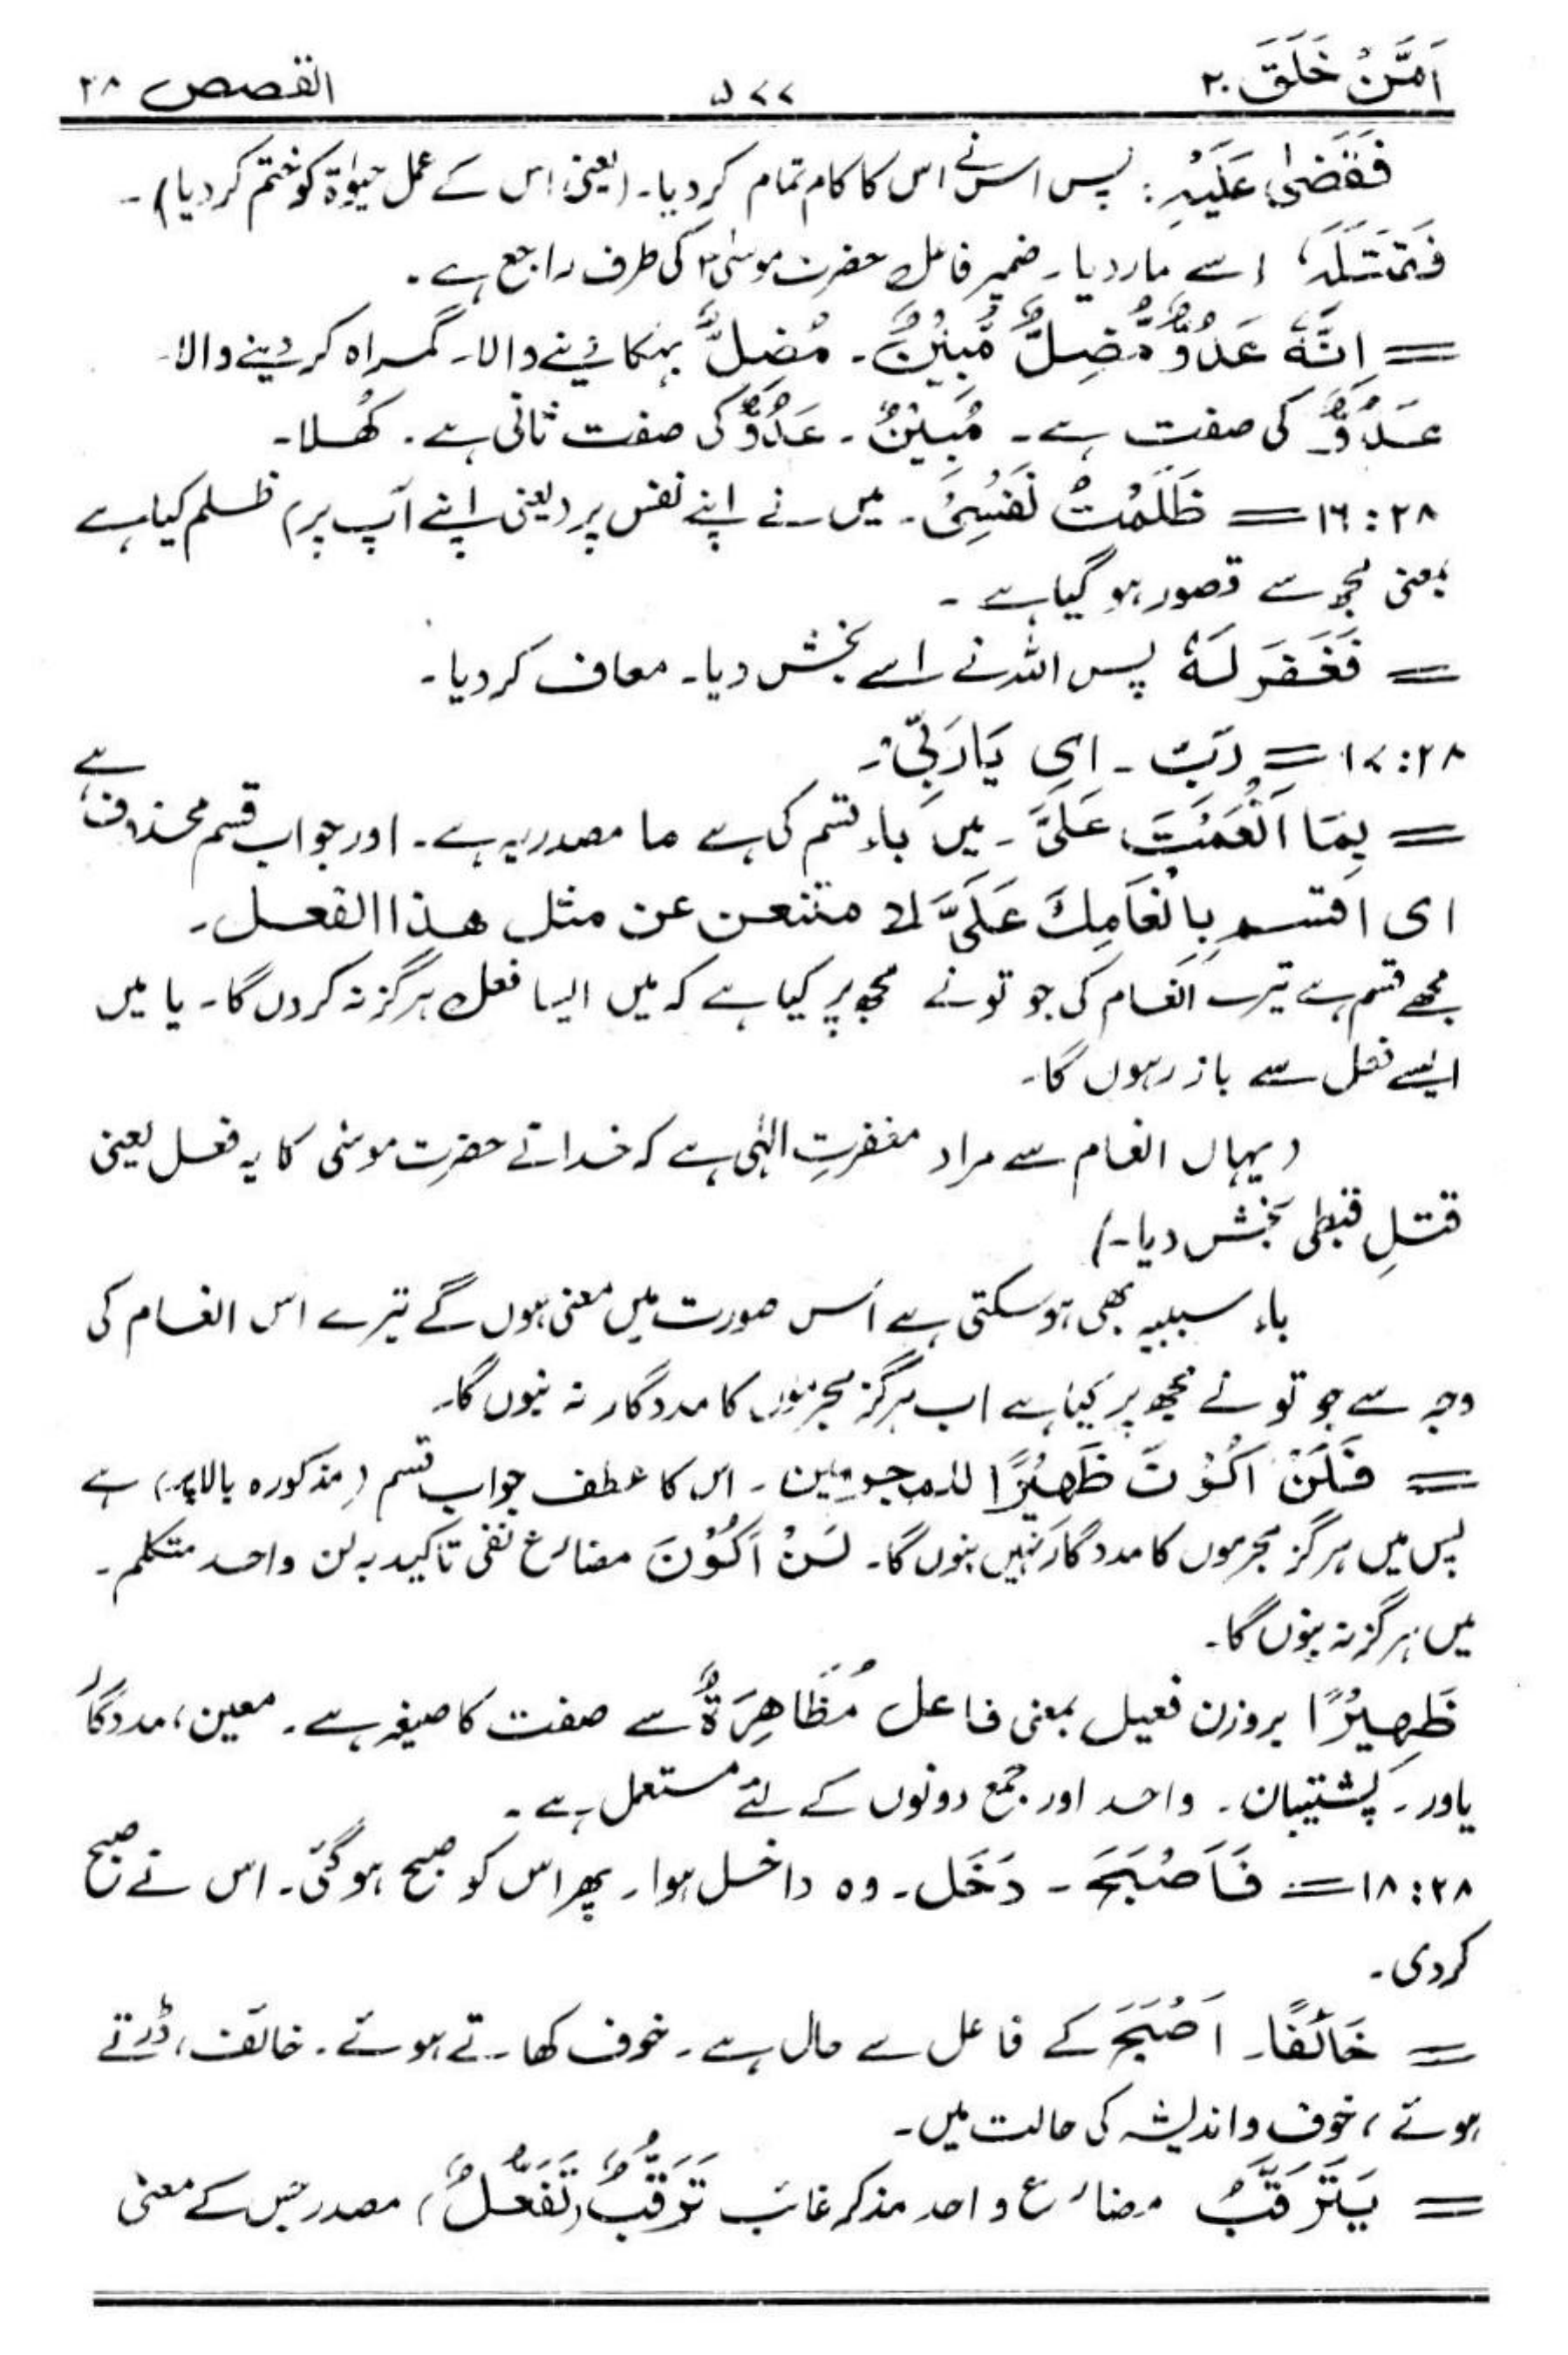 اَمَّنْ خَلَقَ ۲۰ ۵۷۷ القصص ۲۸
فَقَضٰی عَلَیْہِ: پس اس نے اس کا کام تمام کر دیا۔ (یعنی اس کے عمل حیوٰۃ کو ختم کر دیا)۔
فَقَتَلَہٗ، اسے مار دیا۔ ضمیر فاعل حضرت موسٰیؑ کی طرف راجع ہے۔
= اِنَّہٗ عَدُوٌّ مُّضِلٌّ مُّبِیْنٌ۔ مُضِلٌّ بہکا دینے والا۔ گمراہ کر دینے والا۔
عَدُوٌّ کی صفت ہے۔ مُبِیْنٌ۔ عَدُوٌّ کی صفت ثانی ہے۔ کُھلا۔
۲۸:۱۶ = ظَلَمْتُ نَفْسِیْ۔ میں نے اپنے نفس پر (یعنی اپنے آپ پر) ظلم کیا ہے
بمعنی مجھ سے قصور ہو گیا ہے۔
= فَغَفَرَ لَہٗ پس اللہ نے اسے بخش دیا۔ معاف کر دیا۔
۲۸:۱۷ = رَبِّ۔ ای یَا رَبِّیْ۔
= بِمَا اَنْعَمْتَ عَلَیَّ۔ میں باء قسم کی ہے ما مصدریہ ہے۔ اور جواب قسم محذوف ہے
ای اقسم بِاِنْعَامِکَ عَلَیَّ لا متنعن عن مثل ھذا الفعل۔
مجھے قسم ہے تیرے انعام کی جو تو نے مجھ پر کیا ہے کہ میں ایسا فعل ہرگز نہ کروں گا۔ یا میں
ایسے فعل سے باز رہوں گا۔
(یہاں انعام سے مراد مغفرتِ الٰہی ہے کہ خدا نے حضرت موسٰی کا یہ فعل یعنی
قتلِ قبطی بخش دیا۔)
باء سببیہ بھی ہو سکتی ہے اس صورت میں معنی ہوں گے تیرے اس انعام کی
وجہ سے جو تو نے مجھ پر کیا ہے اب ہرگز مجرموں کا مددگار نہ بنوں گا۔
= فَلَنْ اَکُوْنَ ظَھِیْرًا للمجرمین۔ اس کا عطف جواب قسم (مذکورہ بالا پر) ہے
پس میں ہرگز مجرموں کا مددگار نہیں بنوں گا۔ لَنْ اَکُوْنَ مضارع نفی تاکید بہ لن واحد متکلم۔
میں ہرگز نہ بنوں گا۔
ظَھِیْرًا بروزن فعیل بمعنی فاعل مُظَاھِرَۃٌ سے صفت کا صیغہ ہے۔ معین، مددگار
یاور۔ پشتیبان۔ واحد اور جمع دونوں کے لئے مستعمل ہے۔
۲۸:۱۸ = فَاَصْبَحَ۔ دَخَلَ۔ وہ داخل ہوا۔ پھر اس کو صبح ہو گئی۔ اس نے صبح
کر دی۔
= خَائِفًا۔ اَصْبَحَ کے فاعل سے حال ہے۔ خوف کھاتے ہوئے۔ خائف، ڈرتے
ہوئے، خوف و اندیشہ کی حالت میں۔
= یَتَرَقَّبُ مضارع واحد مذکر غائب تَرَقُّبٌ (تَفَعُّلٌ) مصدر جس کے معنی